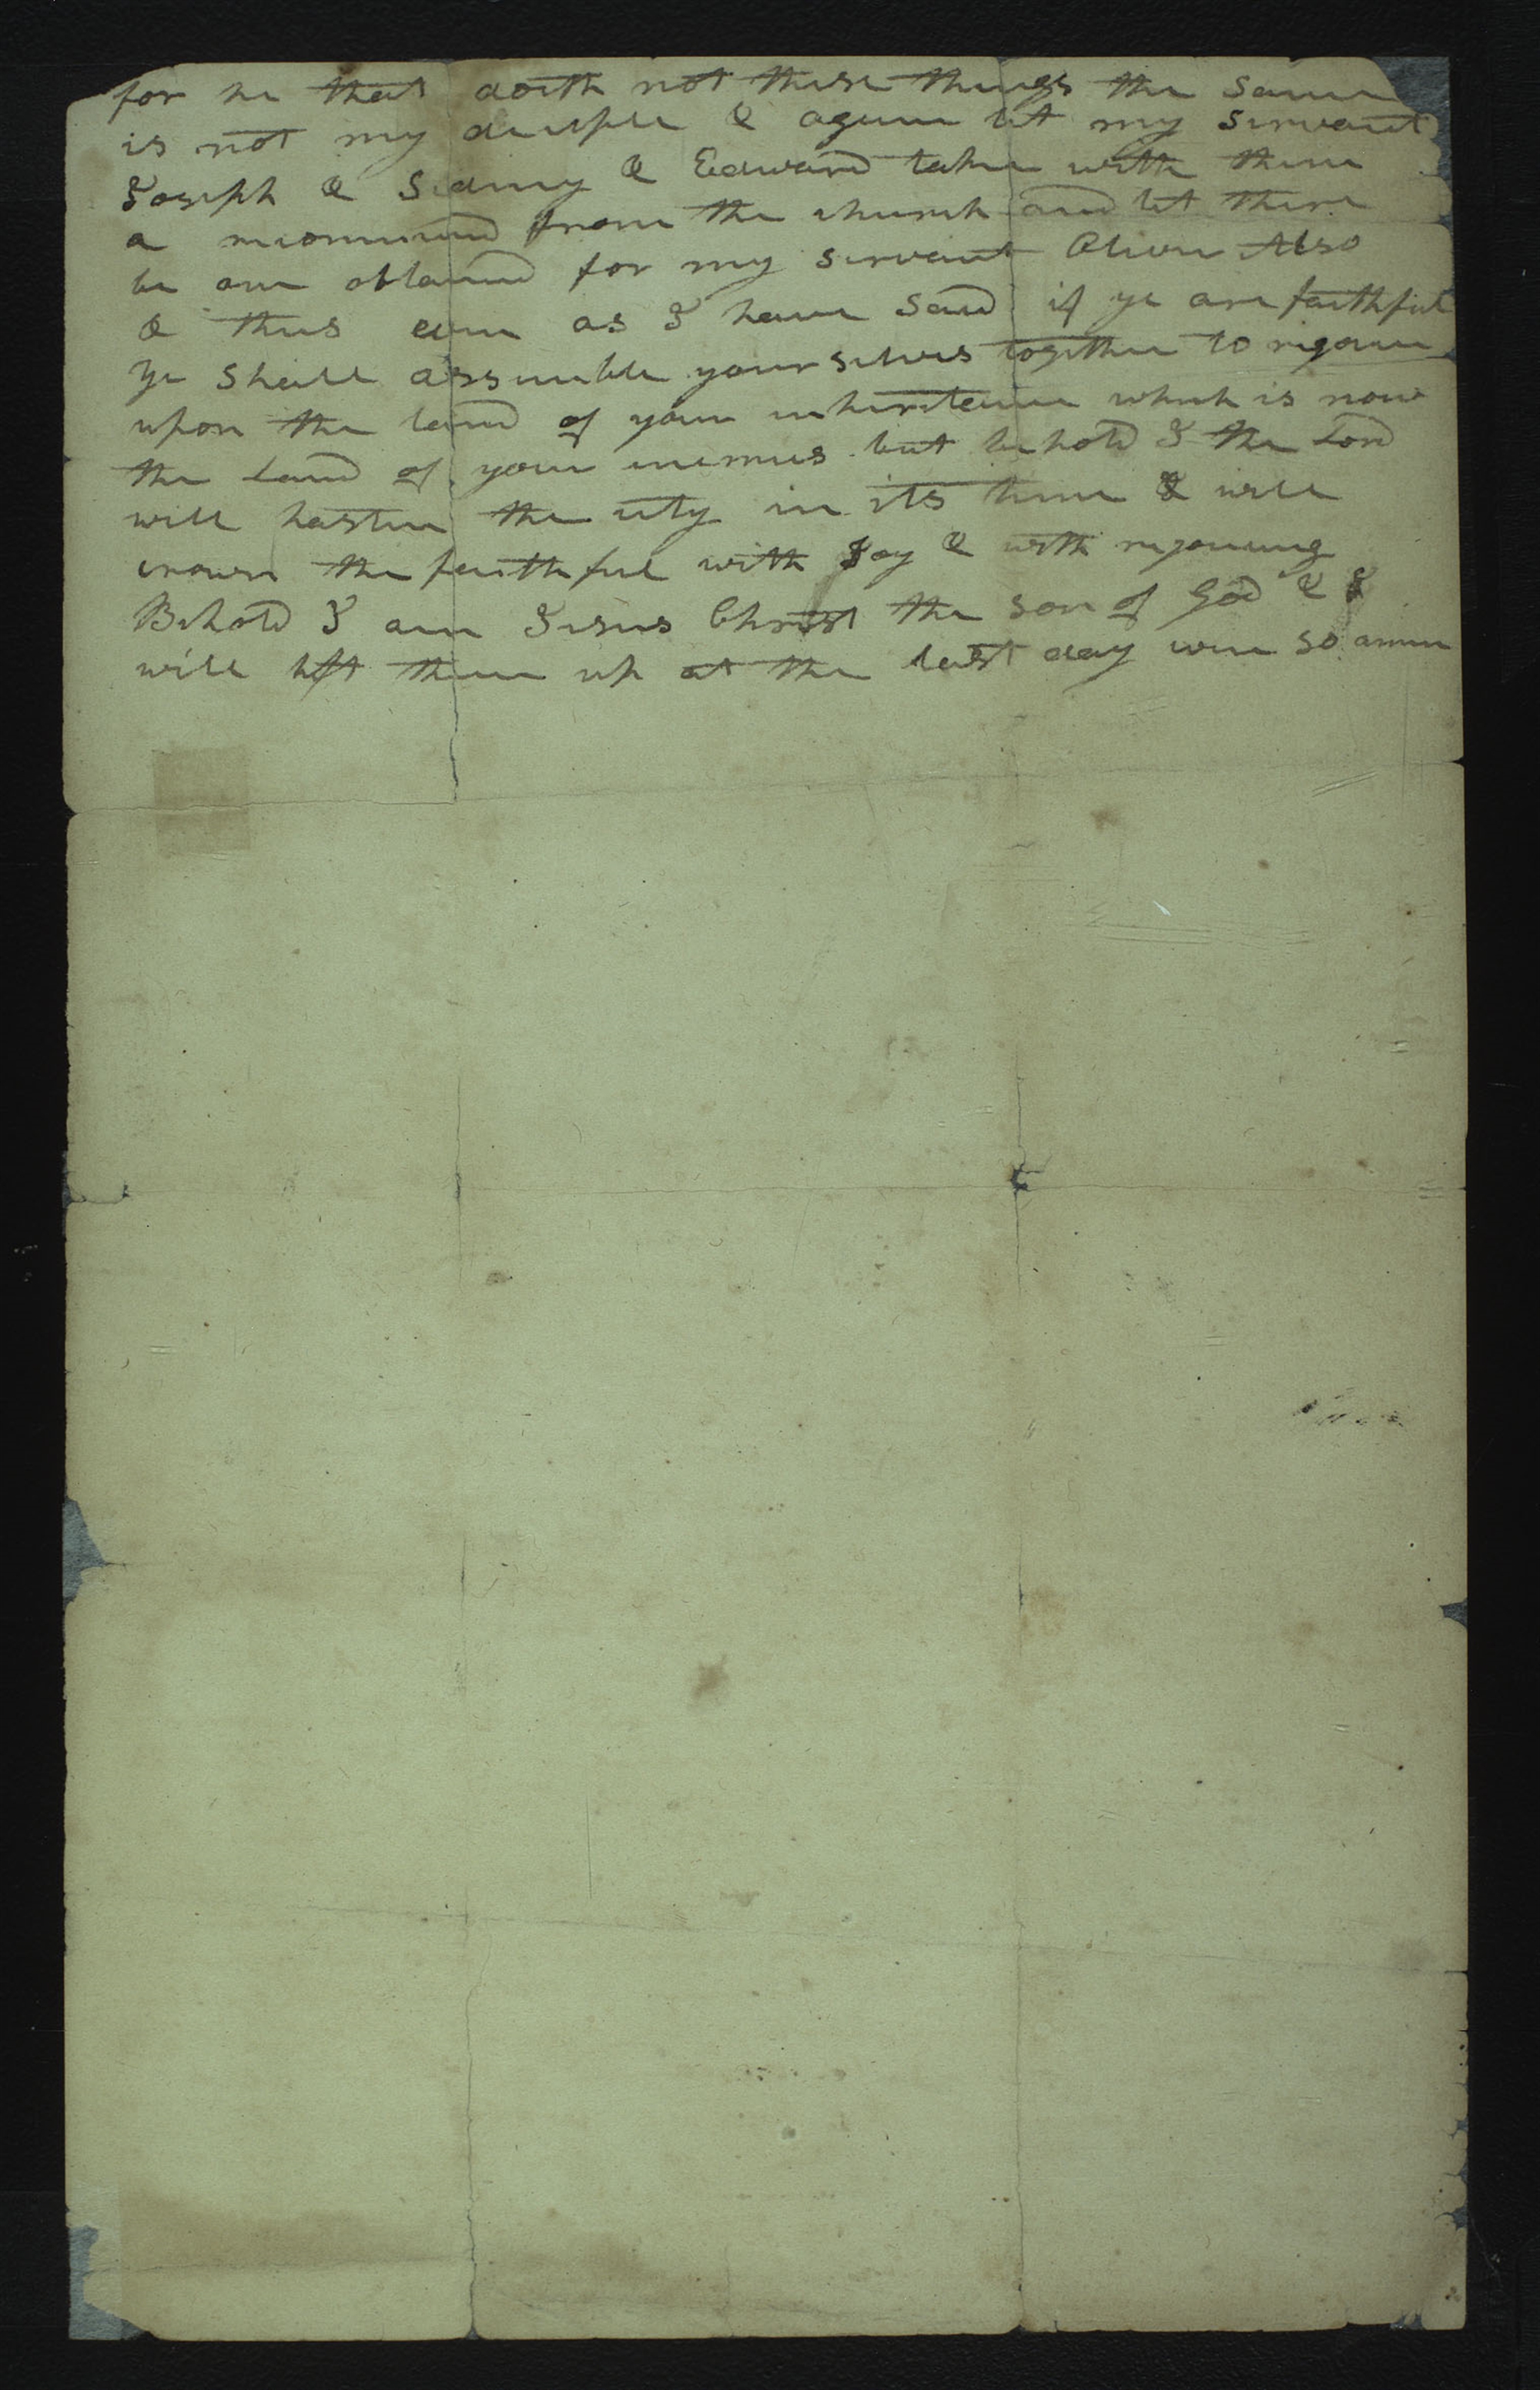 for he that doeth not these things the same
is not my deciple & again let my servant
Joseph & Sidney & Edward take with them
a recommend from the church and let there
be one obtained for my servant Oliver Also
& thus even as I have said if ye are faithful
ye shall assemble yourselves together to rejoice
upon the land of your inheritence which is now
the Land of your enemies but behold I the Lord
will hasten the city in its time & will
crown the faithful with Joy & with rejoicing
Behold I am Jesus Christ the son of God & I
will lift them up at the last day even so amen